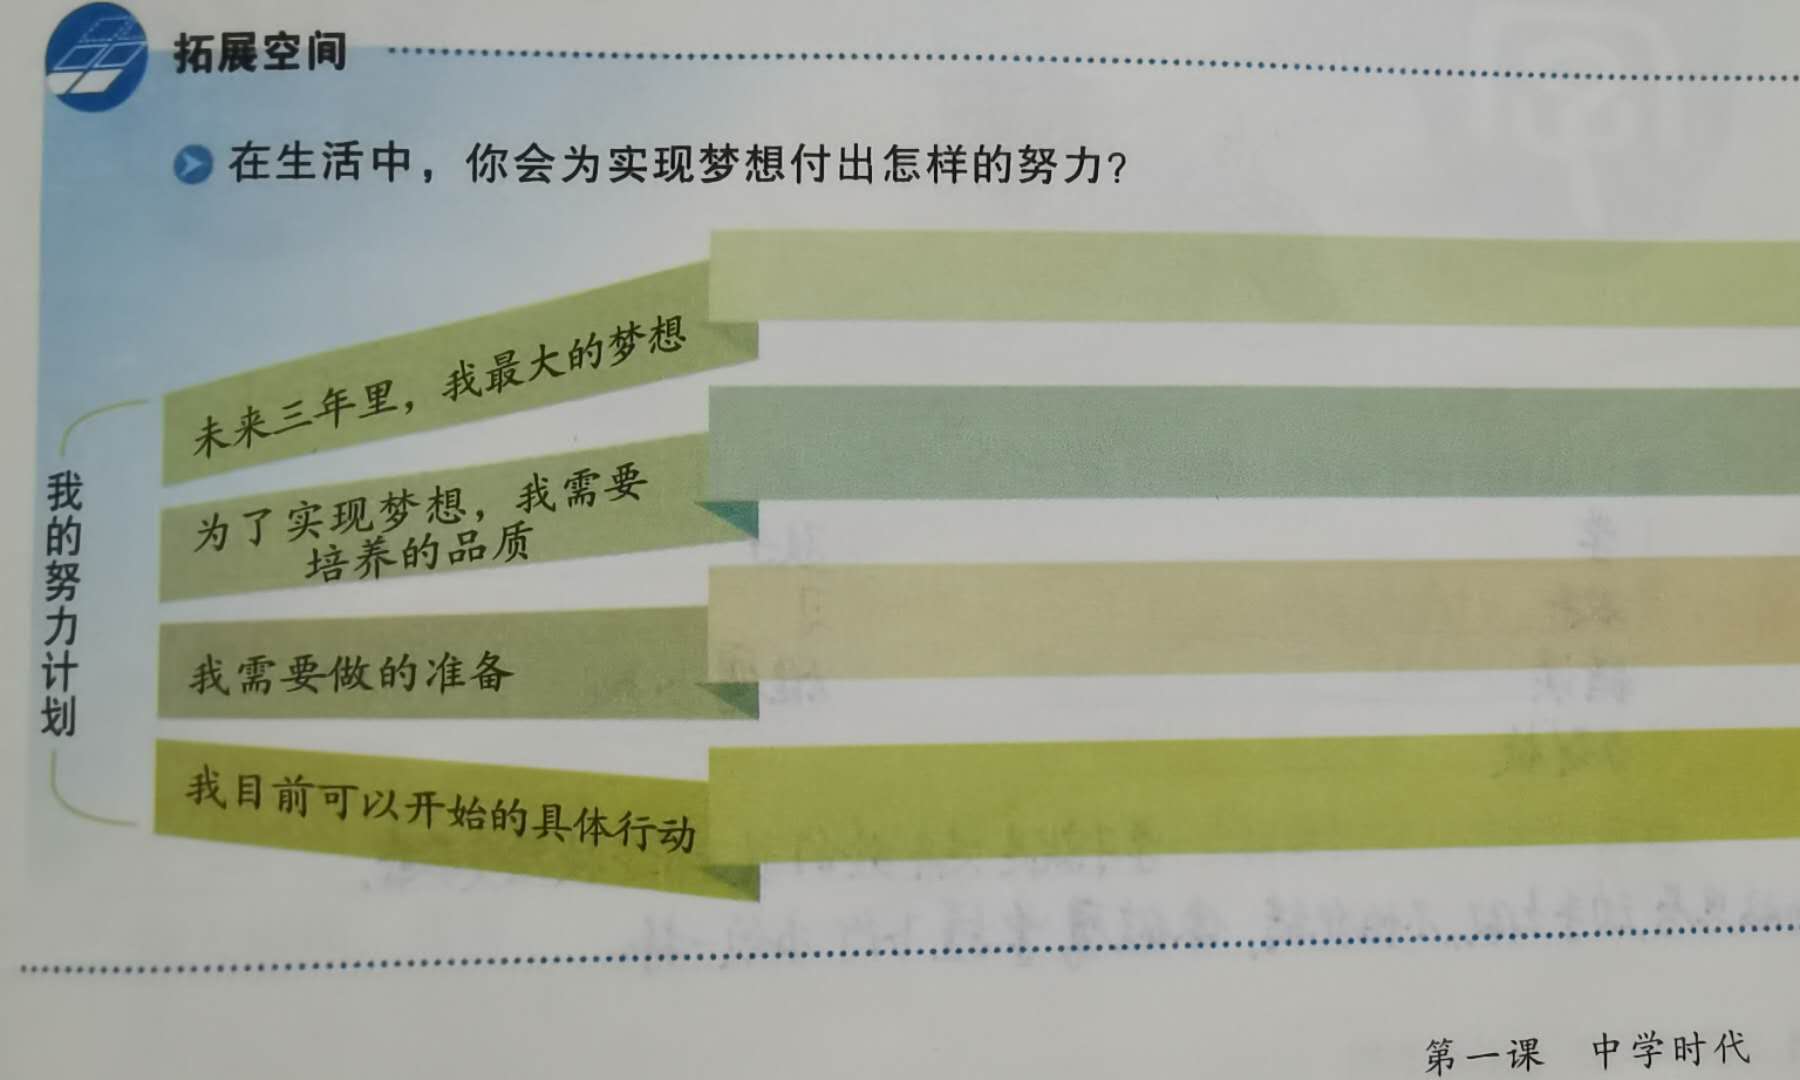 拓展空间
在生活中，你会为实现梦想付出怎样的努力？
我的努力计划
未来三年里，我最大的梦想
为了实现梦想，我需要
培养的品质
我需要做的准备
我目前可以开始的具体行动
第一课 中学时代